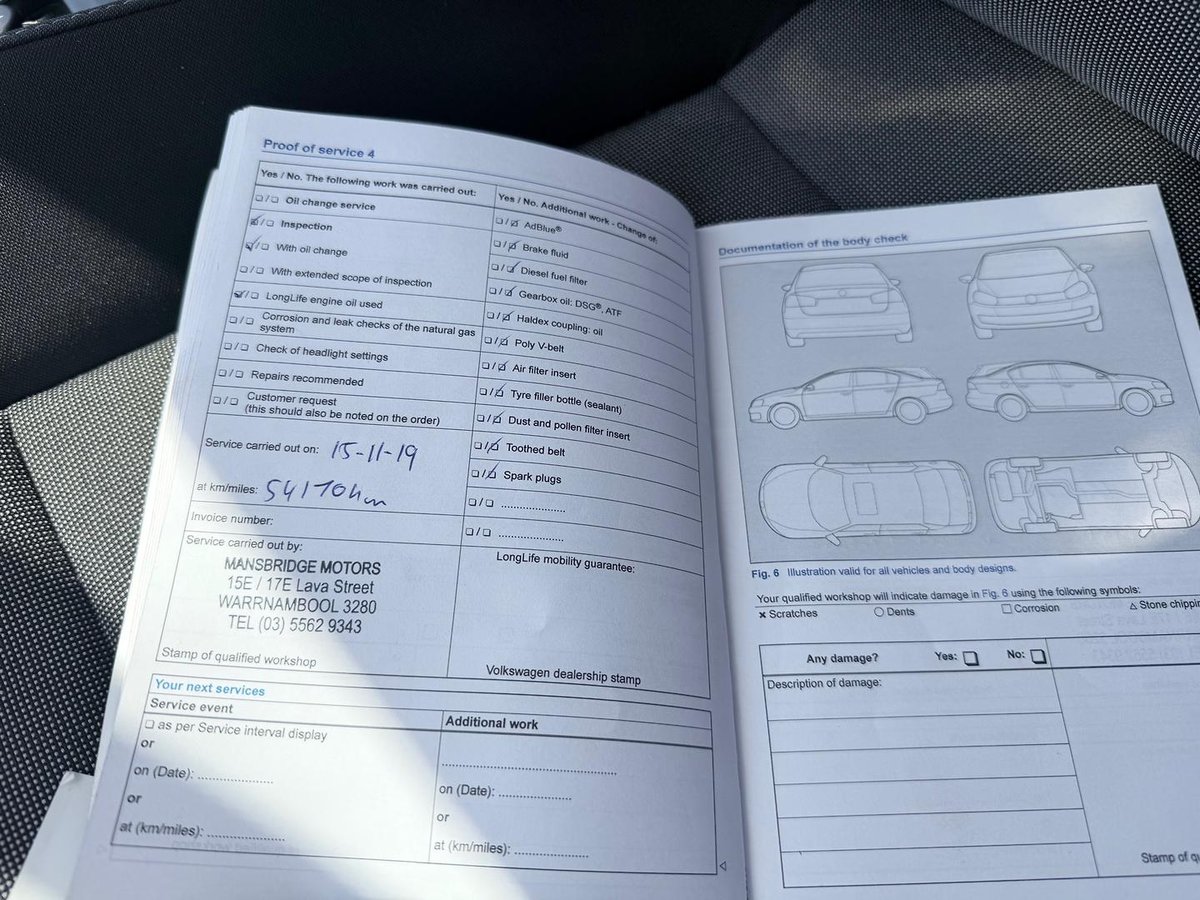 Proof of service 4
Yes / No. The following work was carried out:
Oil change service
Inspection
With oil change
With extended scope of inspection
LongLife engine oil used
Corrosion and leak checks of the natural gas
system
Check of headlight settings
Repairs recommended
Customer request
(this should also be noted on the order)
Service carried out on: 15-11-19
at km/miles: 54170km
Invoice number:
Service carried out by:
MANSBRIDGE MOTORS
15E / 17E Lava Street
WARRNAMBOOL 3280
TEL (03) 5562 9343
Stamp of qualified workshop
Yes / No. Additional work - Change of:
AdBlue®
Brake fluid
Diesel fuel filter
Gearbox oil: DSG®, ATF
Haldex coupling: oil
Poly V-belt
Air filter insert
Tyre filler bottle (sealant)
Dust and pollen filter insert
Toothed belt
Spark plugs
LongLife mobility guarantee:
Volkswagen dealership stamp
Your next services
Service event
as per Service interval display
or
on (Date): ..................
or
at (km/miles): ..................
Additional work
on (Date): ..................
or
at (km/miles): ..................
Documentation of the body check
Fig. 6 Illustration valid for all vehicles and body designs.
Your qualified workshop will indicate damage in Fig. 6 using the following symbols:
Scratches
Dents
Corrosion
Stone chippin
Any damage? Yes: No:
Description of damage:
Stamp of qu